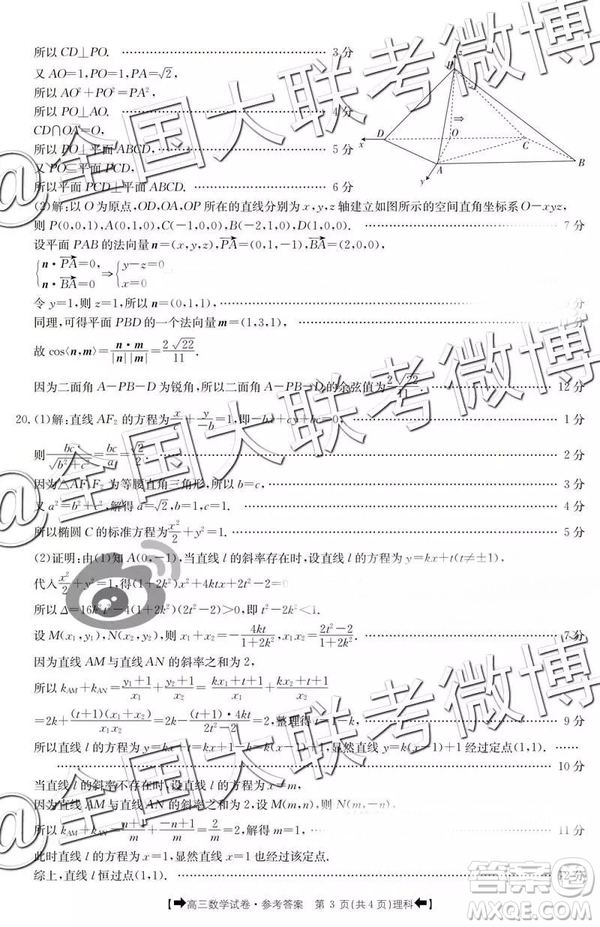 所以 CD⊥PO. 3 分
又 AO=1, PO=1, PA=√2,
所以 AO²+PO²=PA²,
所以 PO⊥AO. 4 分
CD∩OA=O,
所以 PO⊥平面 ABCD. 5 分
又 PO⊂平面 PCD,
所以平面 PCD⊥平面 ABCD. 6 分
P
D
O
C
A
B
x
y
(2)解:以 O 为原点, OD, OA, OP 所在的直线分别为 x, y, z 轴建立如图所示的空间直角坐标系 O-xyz,
则 P(0,0,1), A(0,1,0), C(-1,0,0), B(-2,1,0), D(1,0,0). 7 分
设平面 PAB 的法向量 n=(x,y,z), PA=(0,1,-1), BA=(2,0,0),
{n·PA=0, n·BA=0 ⇒ {y-z=0 x=0
令 y=1, 则 z=1, 所以 n=(0,1,1),
同理, 可得平面 PBD 的一个法向量 m=(1,3,1),
故 cos⟨n,m⟩=n·m/|n||m|=2√22/11.
因为二面角 A-PB-D 为锐角, 所以二面角 A-PB-D 的余弦值为 2√22/11. 12 分
20. (1)解:直线 AF₂ 的方程为 x/c+y/-b=1, 即-bx+cy+bc=0, 1 分
则 bc/√(b²+c²)=bc/a=√2/2,
因为△AF₁F₂ 为等腰直角三角形, 所以 b=c, 3 分
又 a²=b²+c², 解得 a=√2, b=1, c=1. 4 分
所以椭圆 C 的标准方程为 x²/2+y²=1. 5 分
(2)证明:由(1)知 A(0,-1), 当直线 l 的斜率存在时, 设直线 l 的方程为 y=kx+t(t≠±1),
代入 x²/2+y²=1, 得(1+2k²)x²+4ktx+2t²-2=0,
所以 Δ=16k²t²-4(1+2k²)(2t²-2)>0, 即 t²-2k²<1.
设 M(x₁,y₁), N(x₂,y₂), 则 x₁+x₂=-4kt/1+2k², x₁x₂=2t²-2/1+2k². 7 分
因为直线 AM 与直线 AN 的斜率之和为 2,
所以 k_AM+k_AN=y₁+1/x₁+y₂+1/x₂=kx₁+t+1/x₁+kx₂+t+1/x₂
=2k+(t+1)(x₁+x₂)/x₁x₂=2k-(t+1)·4kt/2t²-2=2, 整理得 t=1-k. 9 分
所以直线 l 的方程为 y=kx+t=kx+1-k=k(x-1)+1, 显然直线 y=k(x-1)+1 经过定点(1,1).
10 分
当直线 l 的斜率不存在时, 设直线 l 的方程为 x=m,
因为直线 AM 与直线 AN 的斜率之和为 2, 设 M(m,n), 则 N(m,-n),
所以 k_AM+k_AN=n+1/m+-n+1/m=2/m=2, 解得 m=1, 11 分
此时直线 l 的方程为 x=1, 显然直线 x=1 经过该定点.
综上, 直线 l 恒过点(1,1). 12 分
高三数学试卷·参考答案 第 3 页(共 4 页)理科
@全国大联考微博
@全国大联考微博
@全国大联考微博